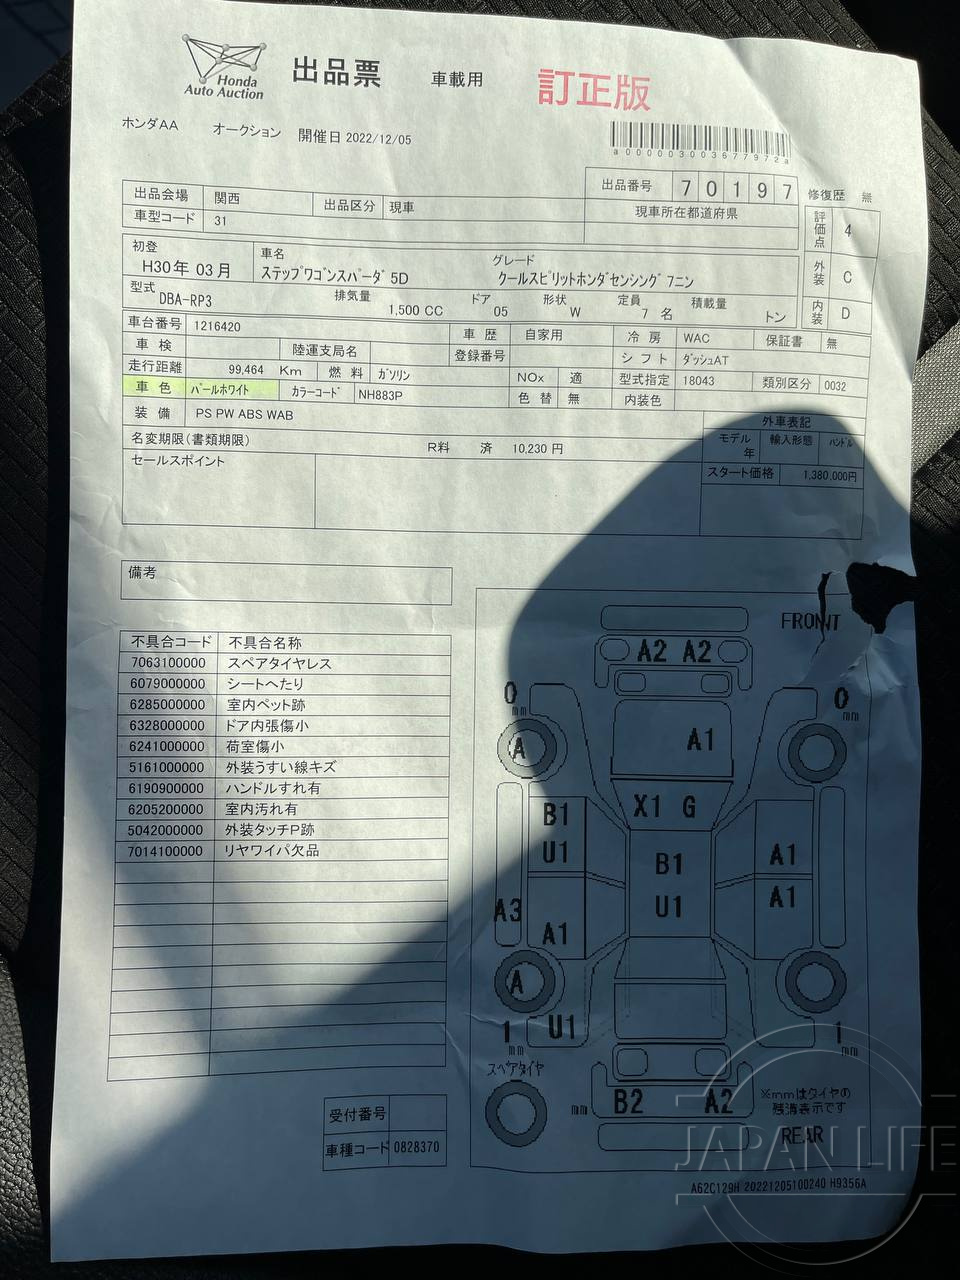 Honda
Auto Auction
出品票
車載用
訂正版
ホンダAA オークション 開催日 2022/12/05
a000003003677972a
出品会場 関西 出品区分 現車
車型コード 31
出品番号 70197
現車所在都道府県
修復歴 無
評価点 4
外装 C
内装 D
初登 H30年 03月
車名 ステップワゴンスパーダ 5D
グレード クールスピリットホンダセンシング 7ニン
型式 DBA-RP3 排気量 1,500 CC ドア 05 形状 W 定員 7 名 積載量 トン
車台番号 1216420 車歴 自家用 冷房 WAC 保証書 無
車検 陸運支局名 登録番号 シフト ダッシュAT
走行距離 99,464 Km 燃料 ガソリン NOx 適 型式指定 18043 類別区分 0032
車色 パールホワイト カラーコード NH883P 色替 無 内装色
装備 PS PW ABS WAB
外車表記
モデル年 輸入形態 ハンドル
名変期限(書類期限) R料 済 10,230 円
スタート価格 1,380,000円
セールスポイント
備考
不具合コード 不具合名称
7063100000 スペアタイヤレス
6079000000 シートへたり
6285000000 室内ペット跡
6328000000 ドア内張傷小
6241000000 荷室傷小
5161000000 外装うすい線キズ
6190900000 ハンドルすれ有
6205200000 室内汚れ有
5042000000 外装タッチP跡
7014100000 リヤワイパ欠品
FRONT
A2 A2
0 mm
0 mm
A
A1
X1 G
B1
U1
B1
U1
A1
A1
A3
A1
A
1 mm
U1
1 mm
スペアタイヤ
mm
B2
A2
※mmはタイヤの
残溝表示です
REAR
受付番号
車種コード 0828370
A62C129H 20221205100240 H9356A
JAPAN LIFE